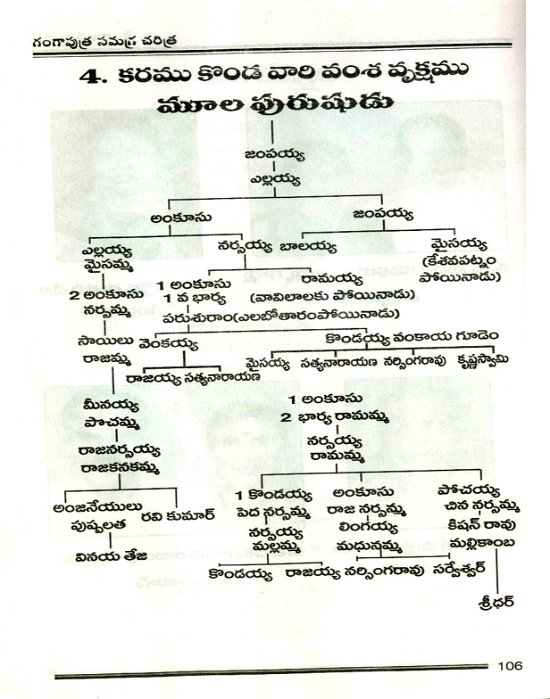 గంగాపుత్ర సమగ్ర చరిత్ర
4. కరము కొండ వారి వంశ వృక్షము
మూల పురుషుడు
జంపయ్య
ఎల్లయ్య
అంకూసు జంపయ్య
ఎల్లయ్య నర్సయ్య బాలయ్య మైసయ్య
మైసమ్మ (కేశవపట్నం
పోయినాడు)
2 అంకూసు 1 అంకూసు రామయ్య
నర్సమ్మ 1 వ భార్య (వావిలాలకు పోయినాడు)
పరుశురాం(ఎలబోతారంపోయినాడు)
సాయిలు వెంకయ్య కొండయ్య వంకాయ గూడెం
రాజమ్మ మైసయ్య సత్యనారాయణ నర్సింగరావు కృష్ణస్వామి
రాజయ్య సత్యనారాయణ
మీనయ్య 1 అంకూసు
పోచమ్మ 2 భార్య రామమ్మ
రాజనర్సయ్య నర్సయ్య
రాజకనకమ్మ రామమ్మ
అంజనేయులు రవి కుమార్ 1 కొండయ్య అంకూసు పోచయ్య
పుష్పలత పెద నర్సమ్మ రాజ నర్సమ్మ చిన నర్సమ్మ
నర్సయ్య లింగయ్య కిషన్ రావు
వినయ తేజ మల్లమ్మ మధునమ్మ మల్లికాంబ
కొండయ్య రాజయ్య నర్సింగరావు సర్వేశ్వర్
శ్రీధర్
106